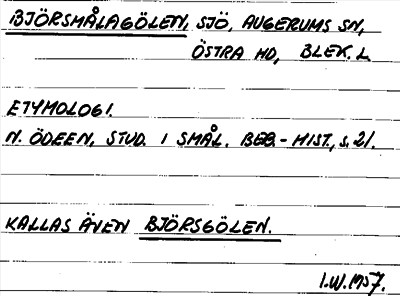 BJÖRSMÅLAGÖLEN, SJÖ, AUGERUMS SN,
ÖSTRA HD, BLEK. L.
ETYMOLOGI.
N. ÖDEEN, STUD. I SMÅL. BEB.-HIST., S. 21.
KALLAS ÄVEN BJÖRSGÖLEN.
I.W. 1957.